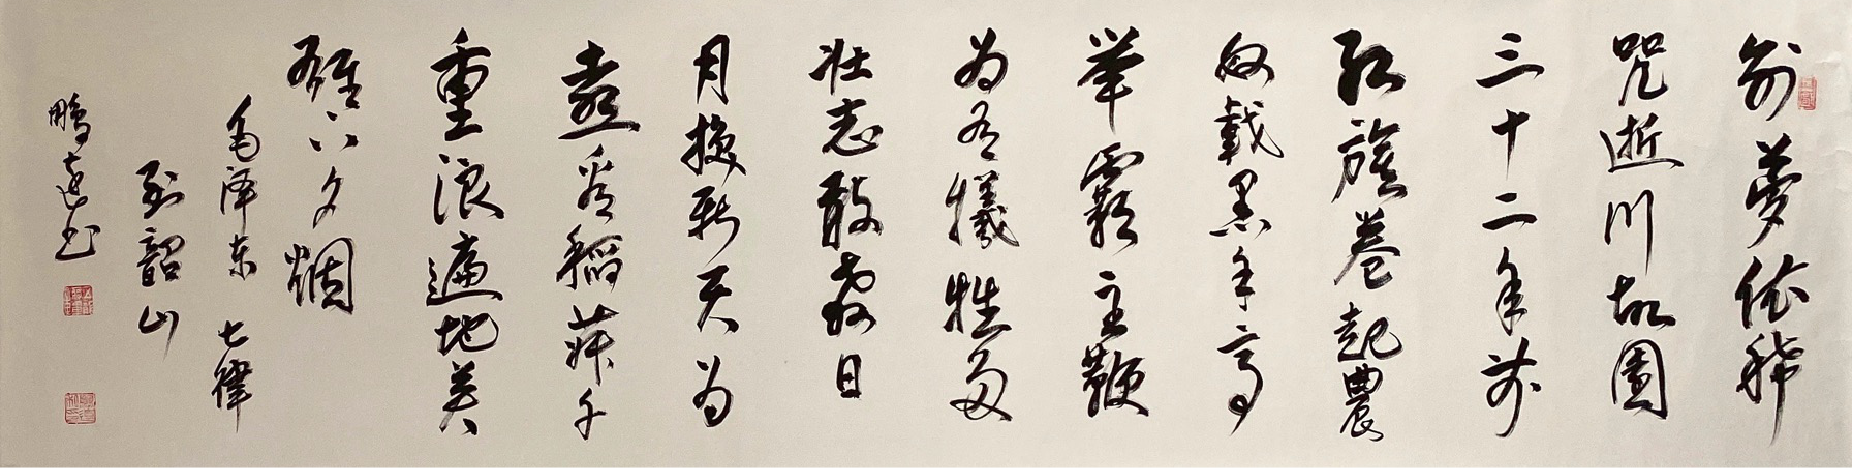 别梦依稀
咒逝川故園
三十二年前
红旗卷起農
奴戟黑手高
举霸主鞭
为有犧牲多
壮志敢教日
月换新天
喜看稻菽千
重浪遍地英
雄下夕烟
毛泽东 七律
到韶山
鹏达书